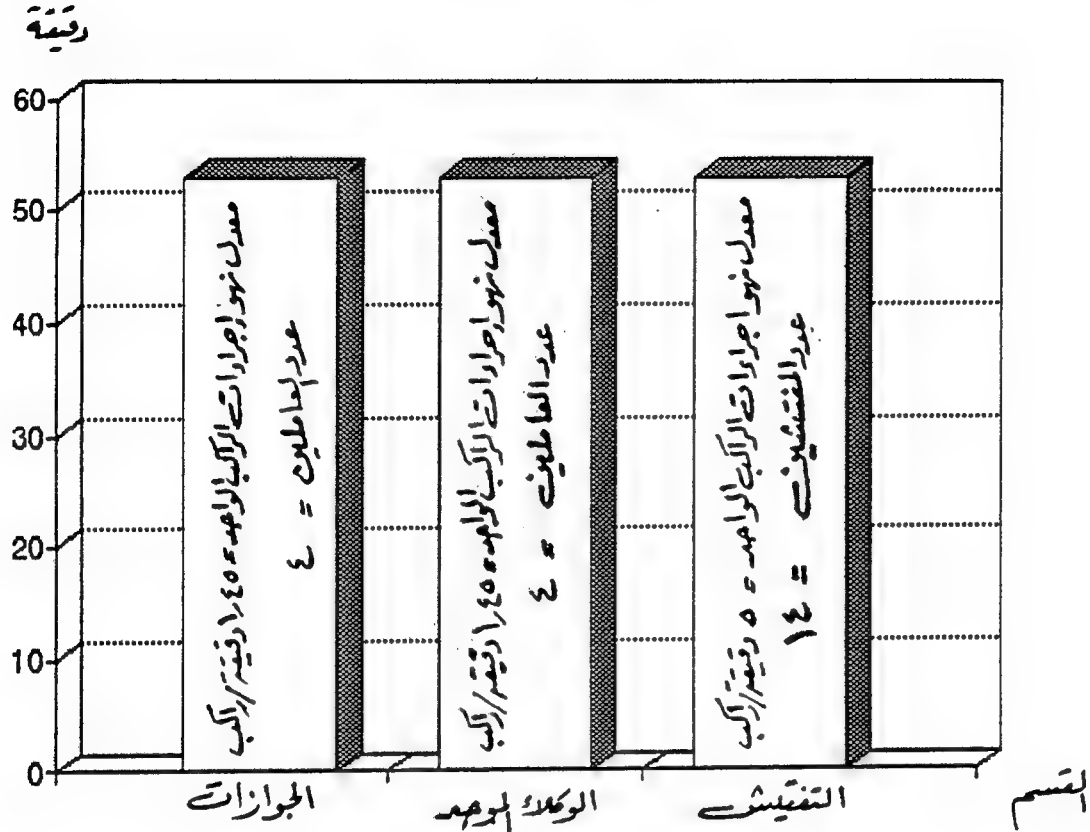 دقيقة
60
50
40
30
20
10
0
معدل نهو إجراءات الراكب الواحد = ١٫٤٥ دقيقة/راكب
عدد العاملين = ٤
معدل نهو إجراءات الراكب الواحد = ١٫٤٥ دقيقة/راكب
عدد العاملين = ٤
معدل نهو اجراءات الراكب الواحد = ٥ دقيقة/راكب
عدد المفتشين = ١٤
الجوازات
الوكلاء الموحد
التفتيش
القسم